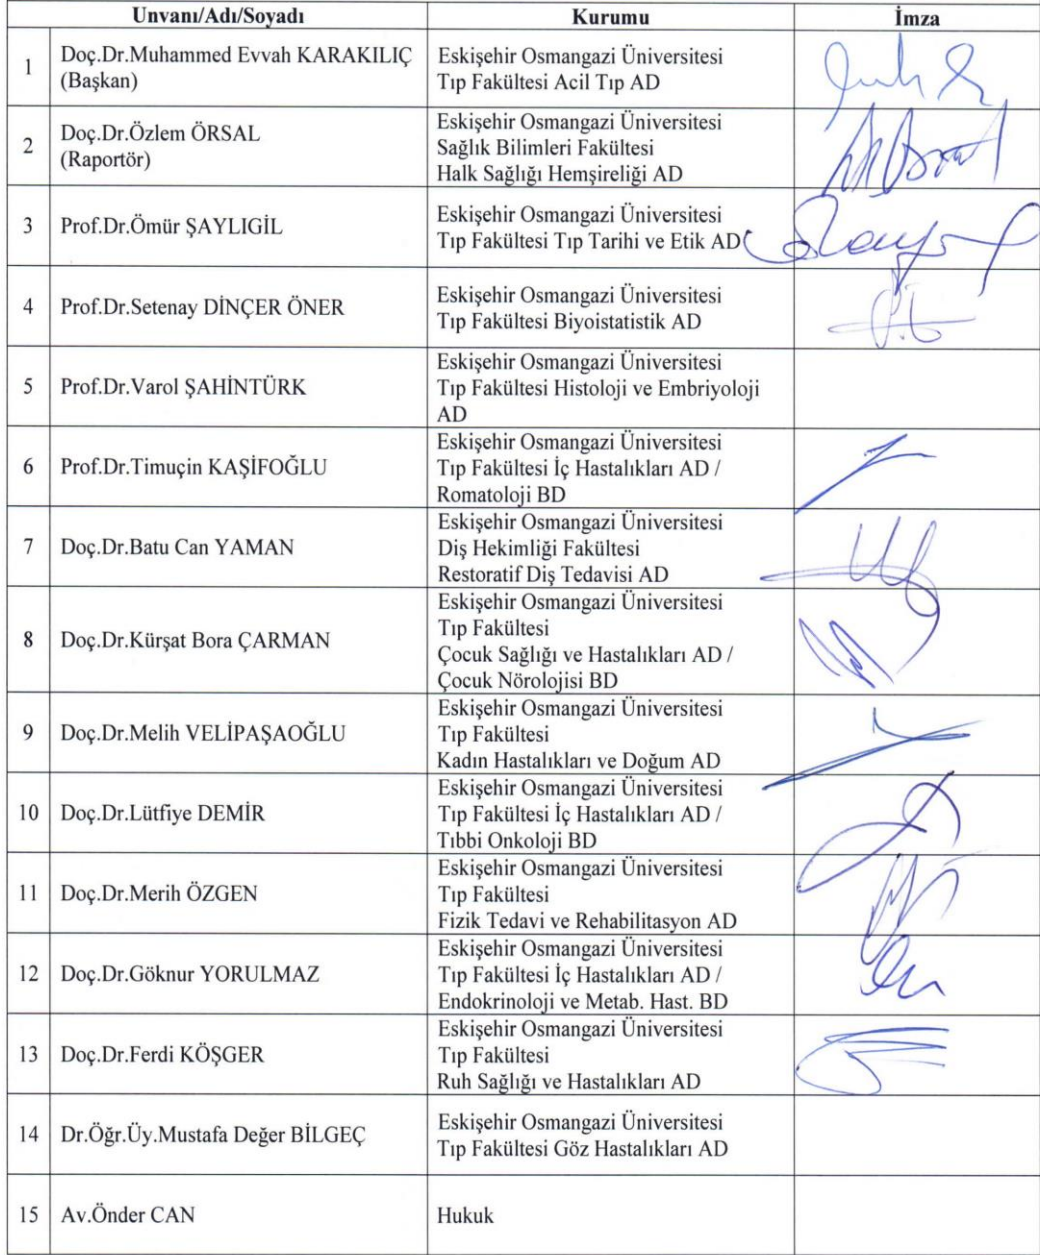 Unvanı/Adı/Soyadı Kurumu İmza
1 Doç.Dr.Muhammed Evvah KARAKILIÇ
(Başkan)
Eskişehir Osmangazi Üniversitesi
Tıp Fakültesi Acil Tıp AD
2 Doç.Dr.Özlem ÖRSAL
(Raportör)
Eskişehir Osmangazi Üniversitesi
Sağlık Bilimleri Fakültesi
Halk Sağlığı Hemşireliği AD
3 Prof.Dr.Ömür ŞAYLIGİL
Eskişehir Osmangazi Üniversitesi
Tıp Fakültesi Tıp Tarihi ve Etik AD
4 Prof.Dr.Setenay DİNÇER ÖNER
Eskişehir Osmangazi Üniversitesi
Tıp Fakültesi Biyoistatistik AD
5 Prof.Dr.Varol ŞAHİNTÜRK
Eskişehir Osmangazi Üniversitesi
Tıp Fakültesi Histoloji ve Embriyoloji
AD
6 Prof.Dr.Timuçin KAŞİFOĞLU
Eskişehir Osmangazi Üniversitesi
Tıp Fakültesi İç Hastalıkları AD /
Romatoloji BD
7 Doç.Dr.Batu Can YAMAN
Eskişehir Osmangazi Üniversitesi
Diş Hekimliği Fakültesi
Restoratif Diş Tedavisi AD
8 Doç.Dr.Kürşat Bora ÇARMAN
Eskişehir Osmangazi Üniversitesi
Tıp Fakültesi
Çocuk Sağlığı ve Hastalıkları AD /
Çocuk Nörolojisi BD
9 Doç.Dr.Melih VELİPAŞAOĞLU
Eskişehir Osmangazi Üniversitesi
Tıp Fakültesi
Kadın Hastalıkları ve Doğum AD
10 Doç.Dr.Lütfiye DEMİR
Eskişehir Osmangazi Üniversitesi
Tıp Fakültesi İç Hastalıkları AD /
Tıbbi Onkoloji BD
11 Doç.Dr.Merih ÖZGEN
Eskişehir Osmangazi Üniversitesi
Tıp Fakültesi
Fizik Tedavi ve Rehabilitasyon AD
12 Doç.Dr.Göknur YORULMAZ
Eskişehir Osmangazi Üniversitesi
Tıp Fakültesi İç Hastalıkları AD /
Endokrinoloji ve Metab. Hast. BD
13 Doç.Dr.Ferdi KÖŞGER
Eskişehir Osmangazi Üniversitesi
Tıp Fakültesi
Ruh Sağlığı ve Hastalıkları AD
14 Dr.Öğr.Üy.Mustafa Değer BİLGEÇ
Eskişehir Osmangazi Üniversitesi
Tıp Fakültesi Göz Hastalıkları AD
15 Av.Önder CAN
Hukuk